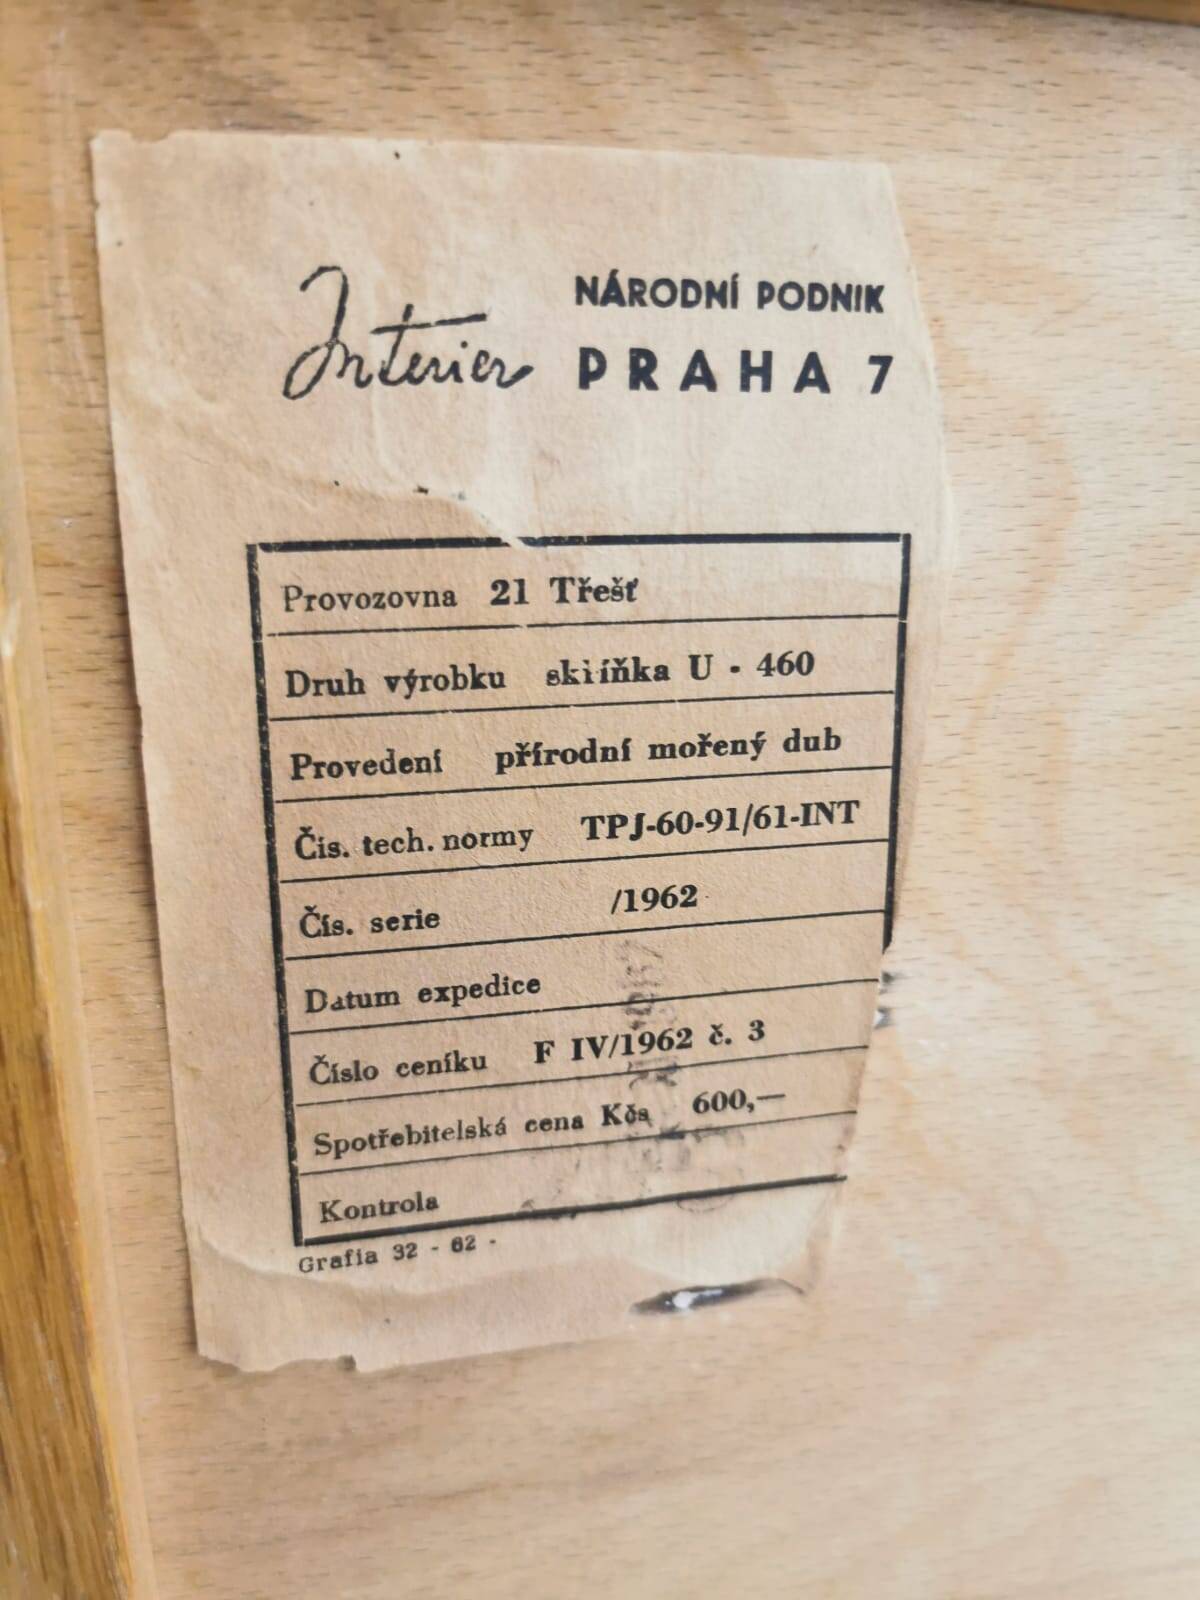 Interier
NÁRODNÍ PODNIK
PRAHA 7
Provozovna 21 Třešť
Druh výrobku skiíňka U - 460
Provedení přírodní mořený dub
Čís. tech. normy TPJ-60-91/61-INT
Čís. serie /1962
Datum expedice
Číslo ceníku F IV/1962 č. 3
Spotřebitelská cena Kčs 600,—
Kontrola
Grafia 32 - 62 -